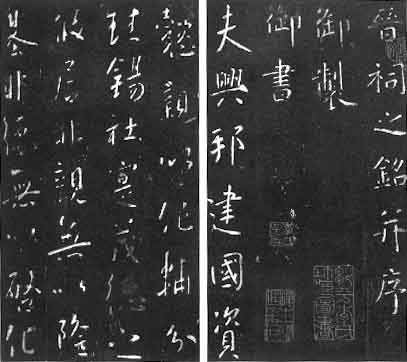 晉祠之銘并序
御製
御書
夫興邦建國資
懿親以作輔分
珪錫社寔茂德之
攸居非親無以隆
基非德無以啓化